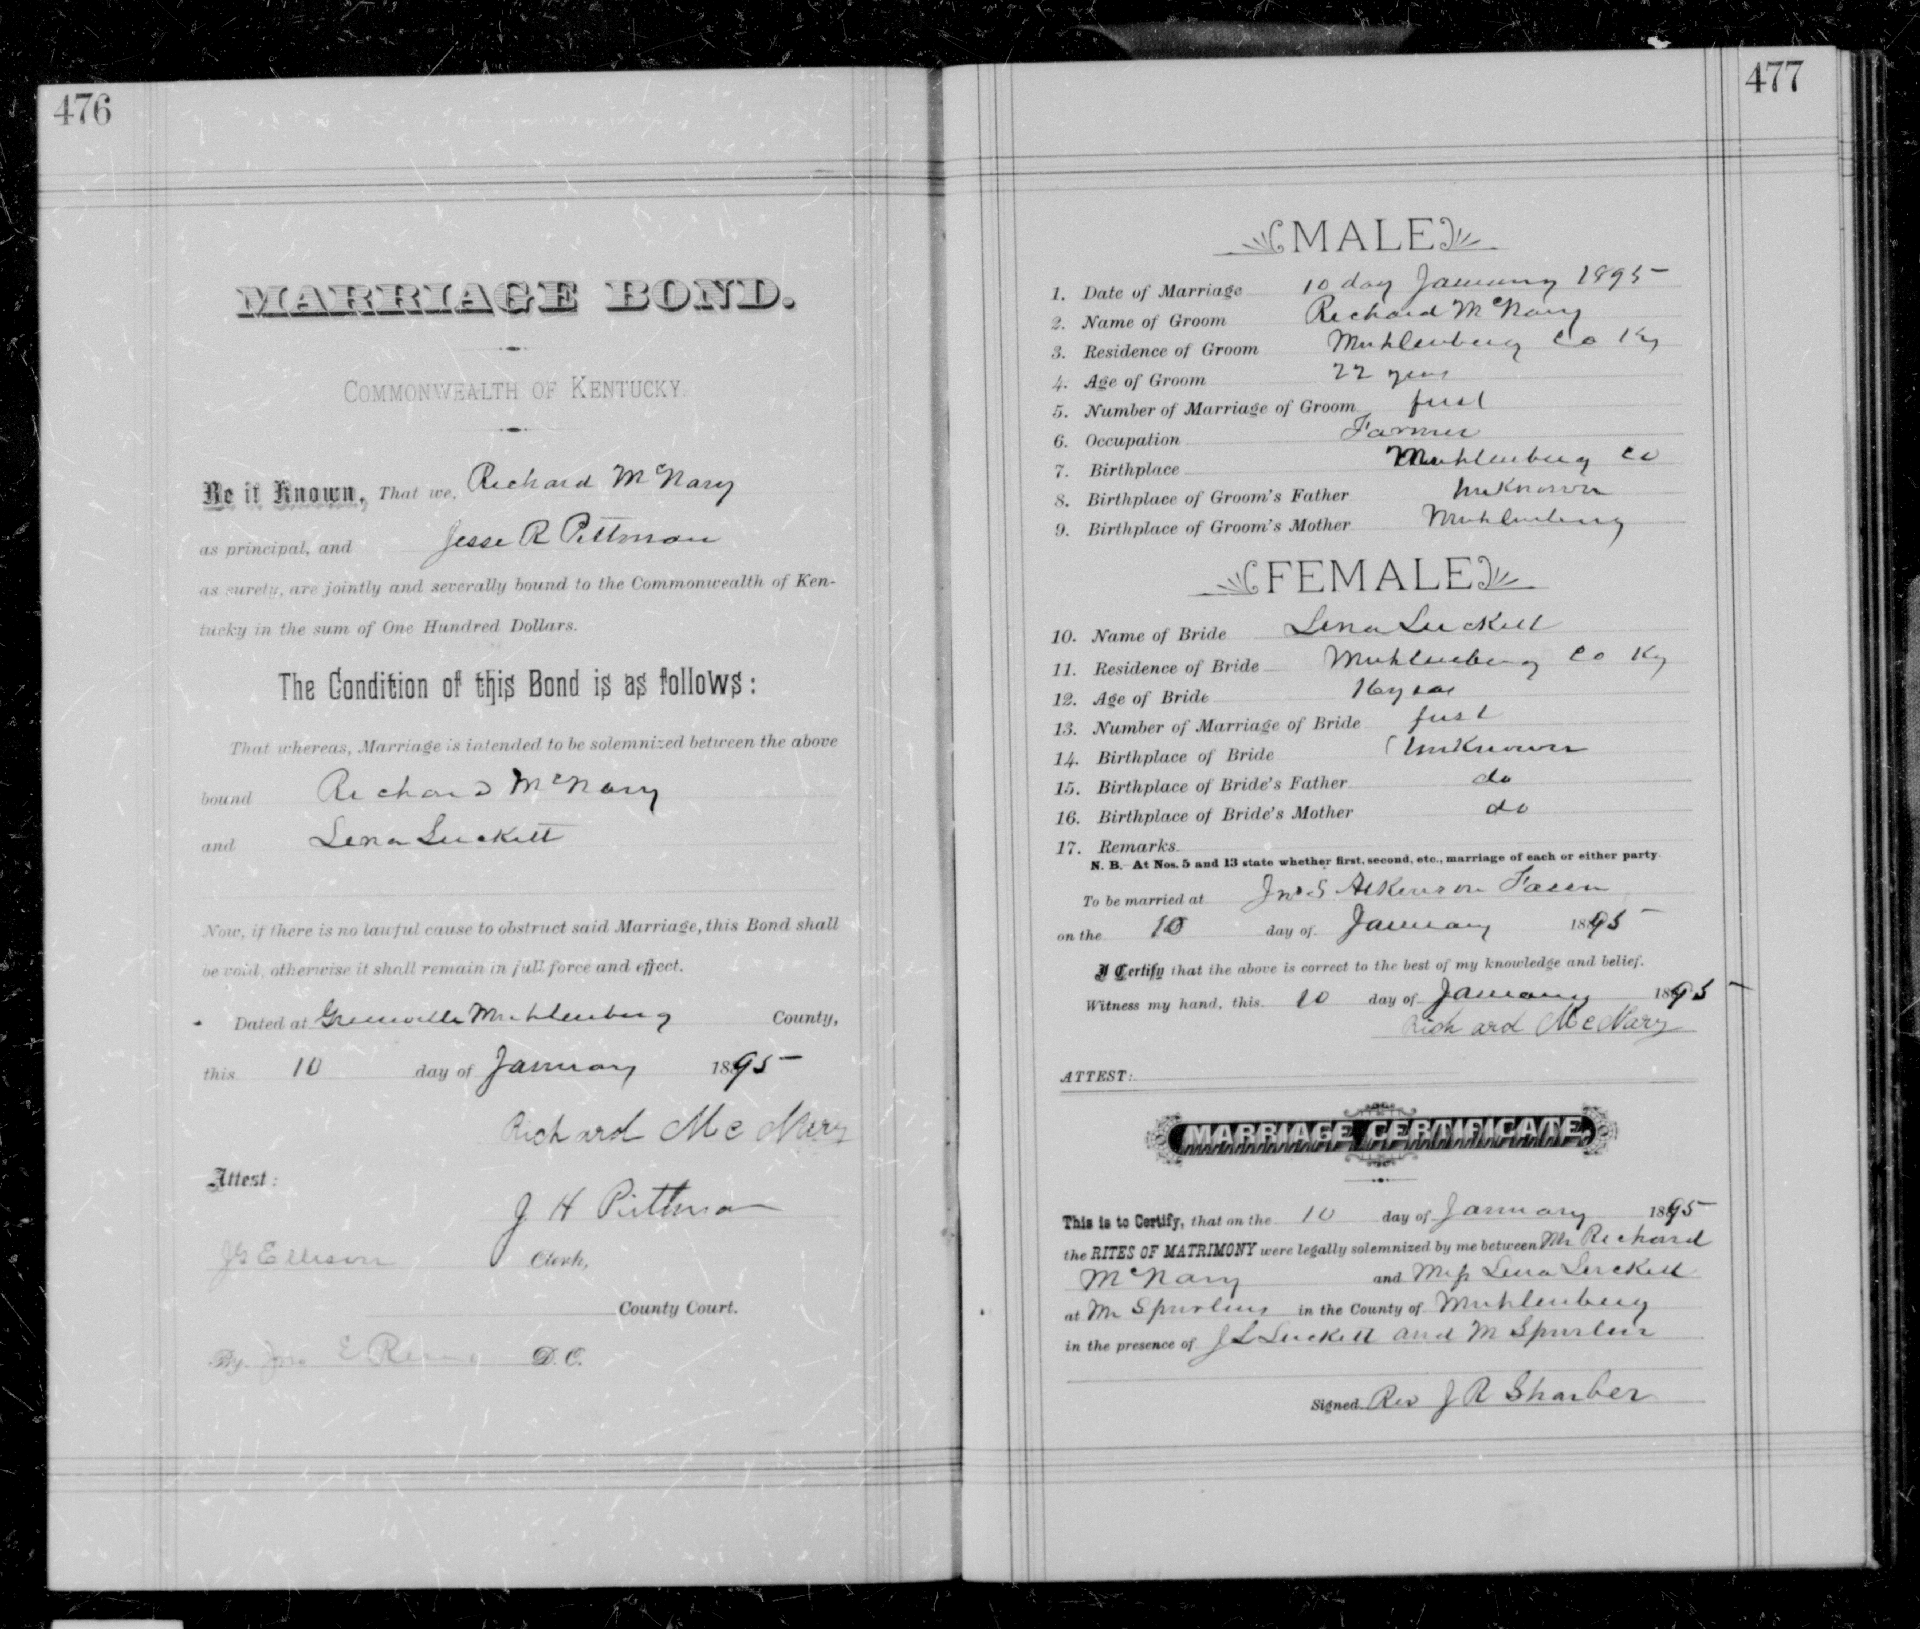 476
MARRIAGE BOND.
COMMONWEALTH OF KENTUCKY.
Be it Known, That we, Richard McNary
as principal, and Jesse R Pittman
as surety, are jointly and severally bound to the Commonwealth of Ken-
tucky in the sum of One Hundred Dollars.
The Condition of this Bond is as follows:
That whereas, Marriage is intended to be solemnized between the above
bound Richard McNary
and Lena Luckett
Now, if there is no lawful cause to obstruct said Marriage, this Bond shall
be void, otherwise it shall remain in full force and effect.
Dated at Greenville Muhlenberg County,
this 10 day of January 1895
Richard Mc Nary
Attest:
J H Pittman
J G Ellison Clerk,
County Court.
By Jno E D. C.
477
MALE
1. Date of Marriage 10 day January 1895
2. Name of Groom Richard McNary
3. Residence of Groom Muhlenberg Co Ky
4. Age of Groom 22 years
5. Number of Marriage of Groom first
6. Occupation Farmer
7. Birthplace Muhlenberg Co
8. Birthplace of Groom's Father Unknown
9. Birthplace of Groom's Mother Muhlenberg
FEMALE
10. Name of Bride Lena Luckett
11. Residence of Bride Muhlenberg Co Ky
12. Age of Bride 16 years
13. Number of Marriage of Bride first
14. Birthplace of Bride Unknown
15. Birthplace of Bride's Father do
16. Birthplace of Bride's Mother do
17. Remarks
N. B. At Nos. 5 and 13 state whether first, second, etc., marriage of each or either party.
To be married at Jno S Atkinson Farm
on the 10 day of January 1895
I Certify that the above is correct to the best of my knowledge and belief.
Witness my hand, this 10 day of January 1895
Richard Mc Nary
ATTEST:
MARRIAGE CERTIFICATE.
This is to Certify, that on the 10 day of January 1895
the RITES OF MATRIMONY were legally solemnized by me between Mr Richard
McNary and Miss Lena Luckett
at Mr Spurlins in the County of Muhlenberg
in the presence of J L Luckett and M Spurlin
Signed Rev J R Sharber